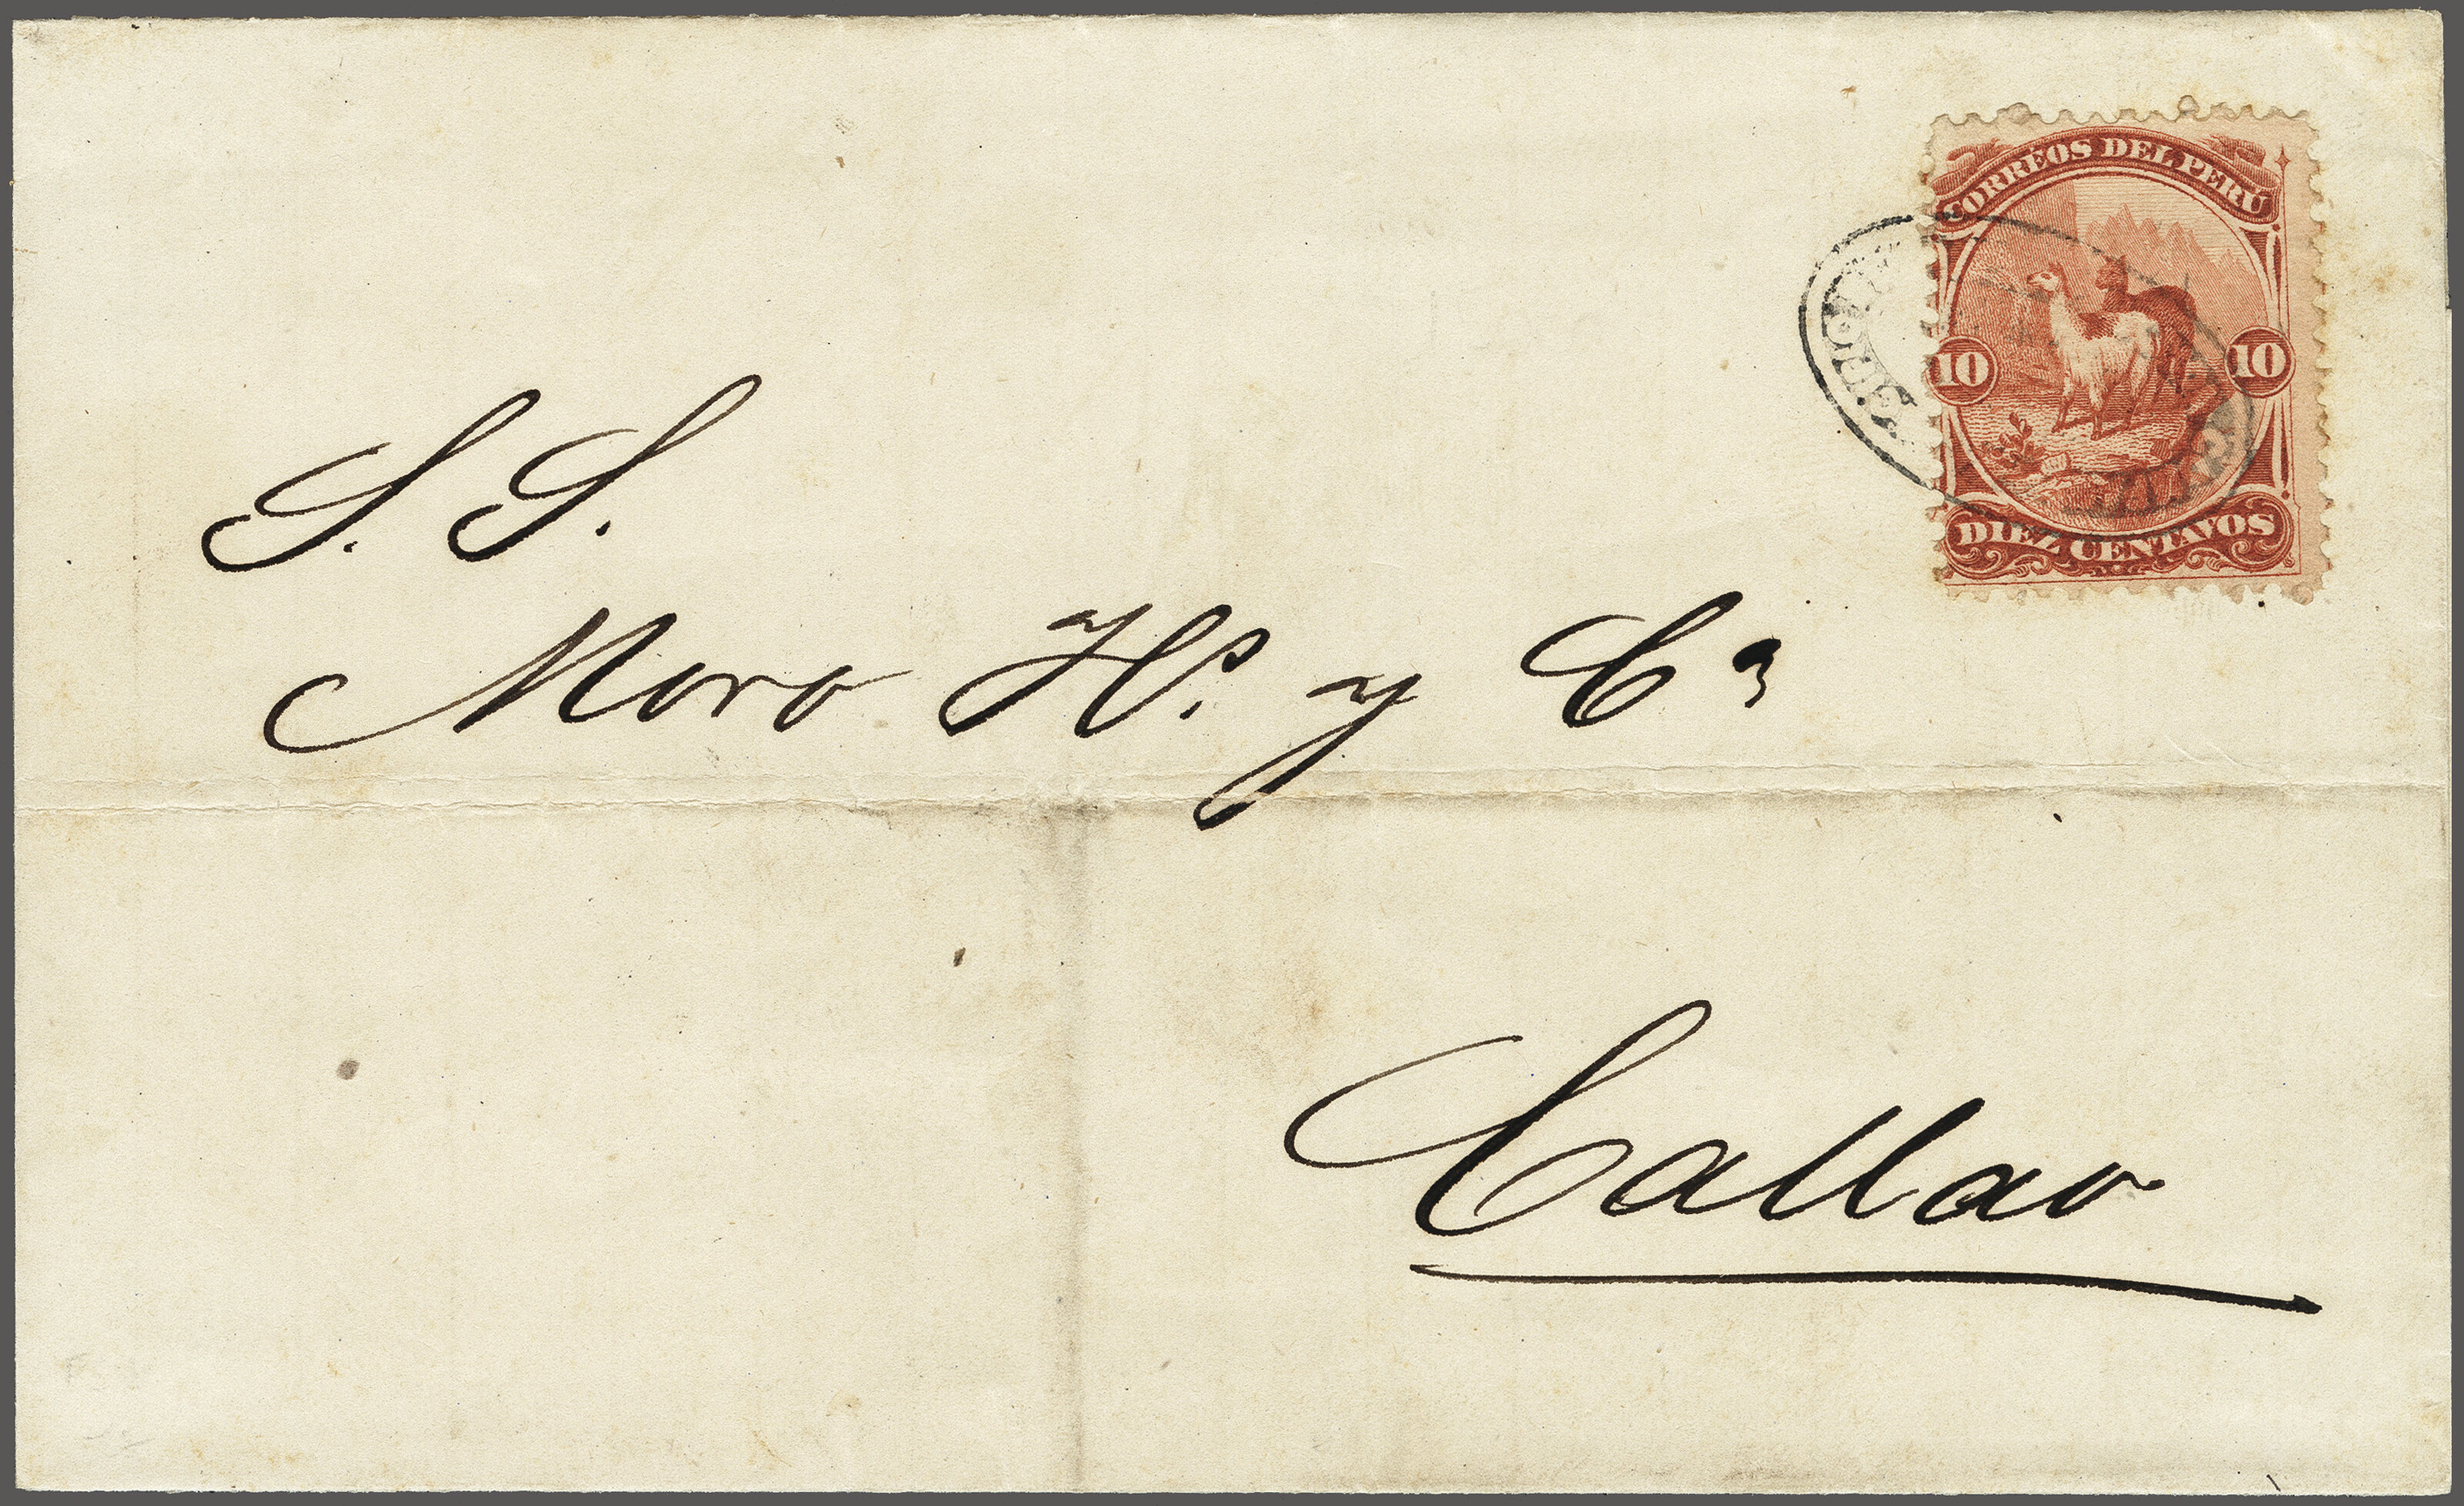 CORREOS DEL PERÚ
10 10
DIEZ CENTAVOS
S. S.
Moro Hs. y Ca
Callao